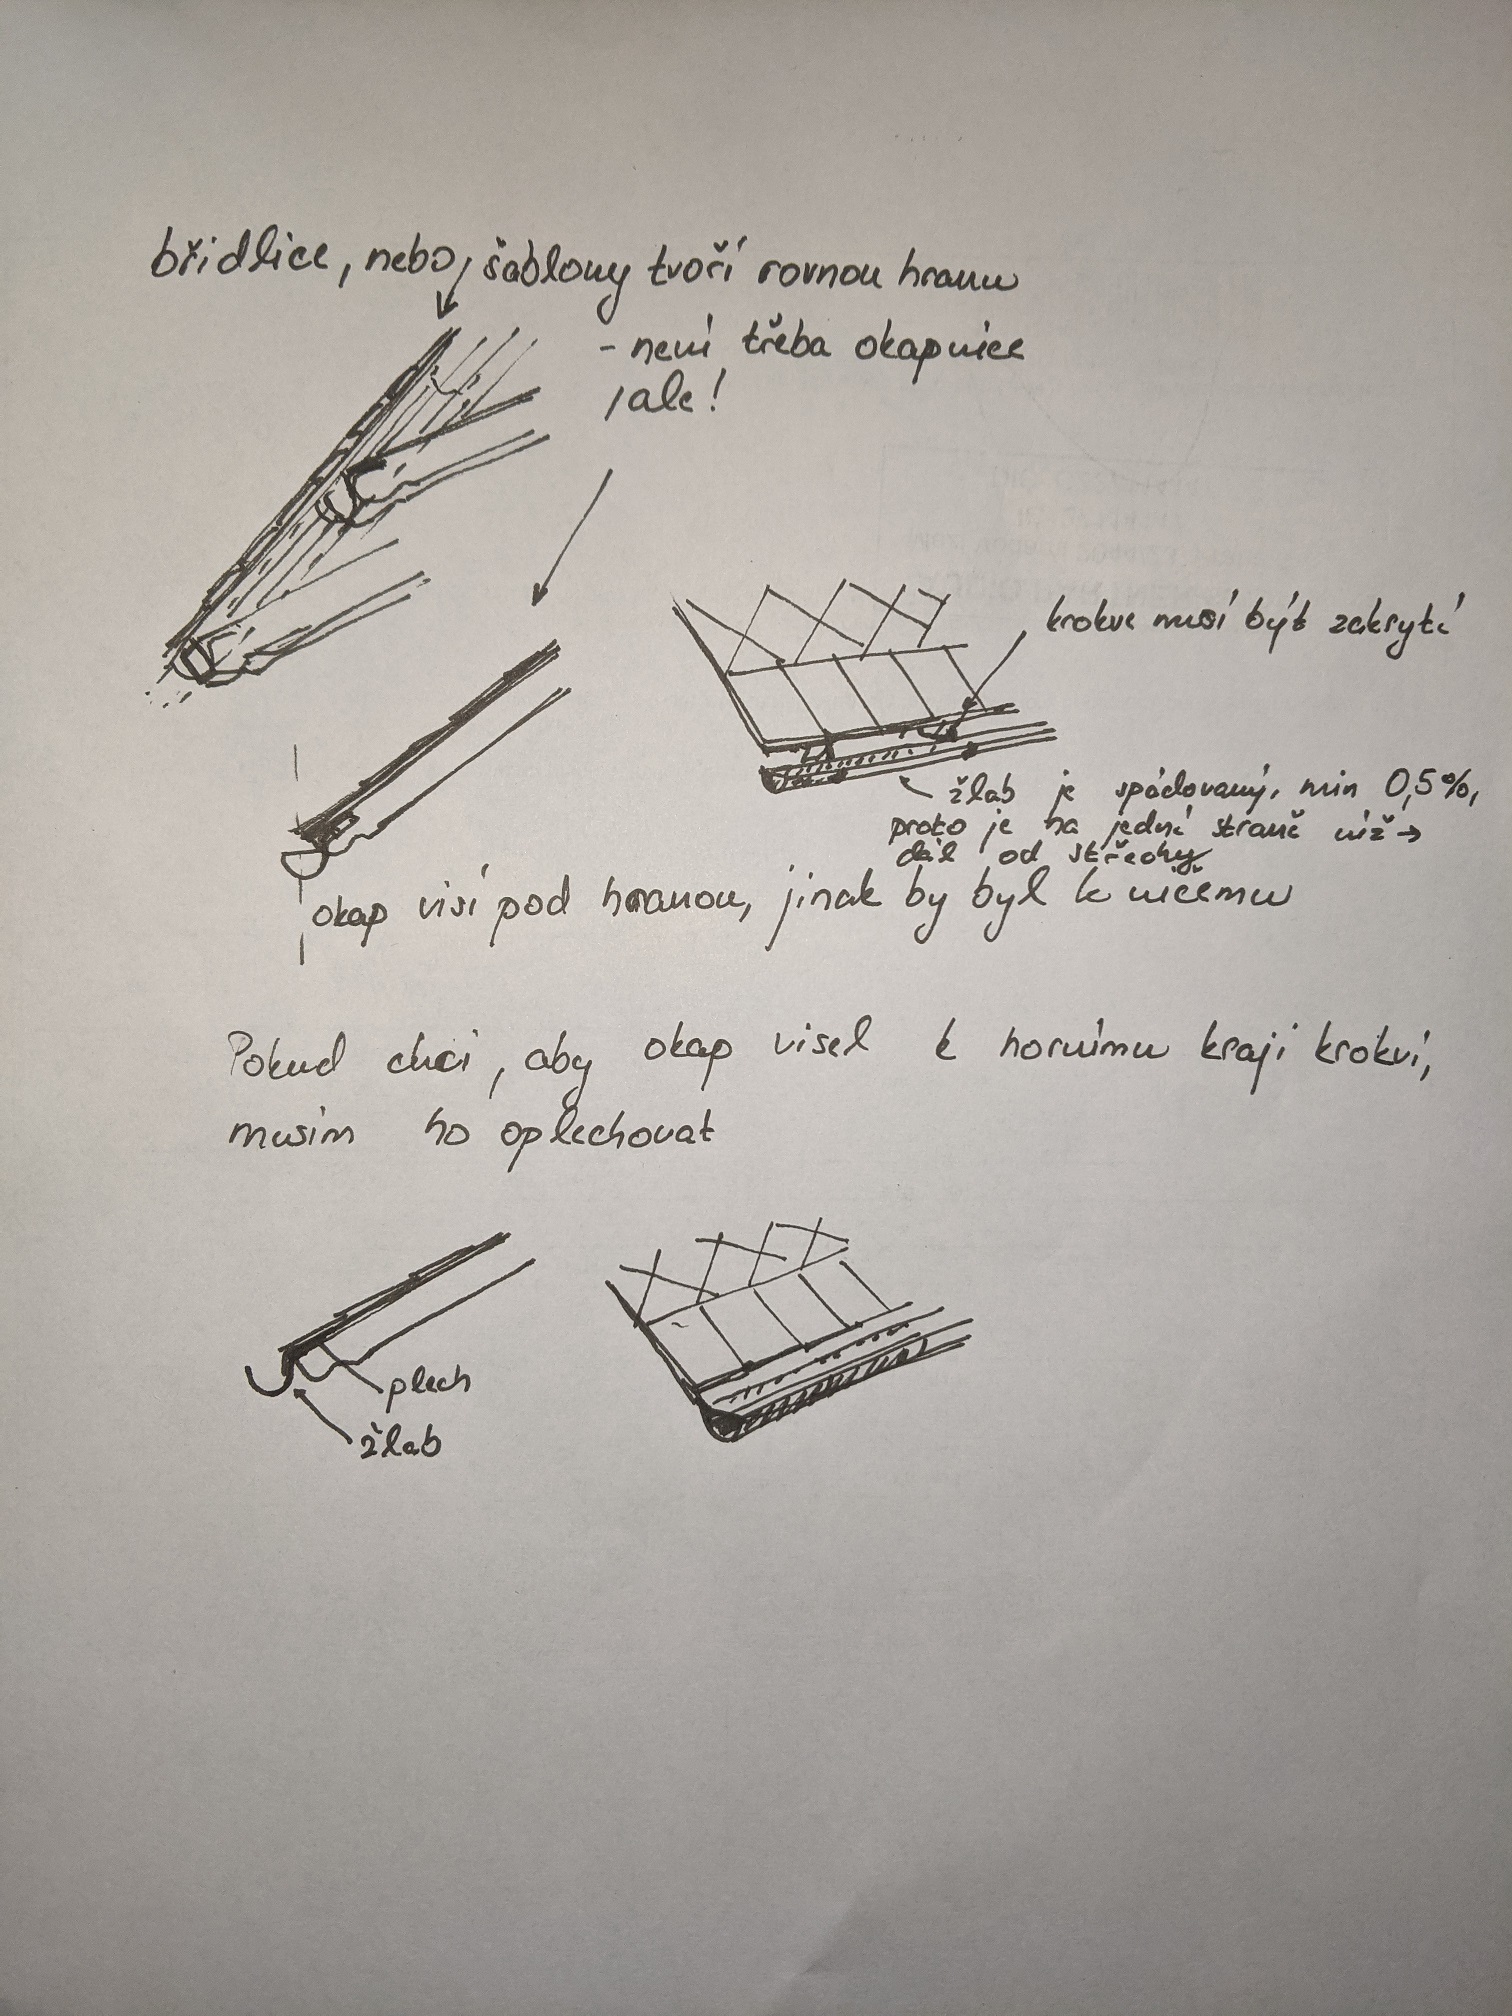 břidlice, nebo, šablony tvoří rovnou hranu
- není třeba okapnice
, ale!
krokve musí být zakrytí
žlab je spádovaný, min 0,5%,
proto je na jedné straně níž →
dál od střechy
okap visí pod hranou, jinak by byl k ničemu
Pokud chci, aby okap visel k hornímu kraji krokví,
musím ho oplechovat
plech
žlab